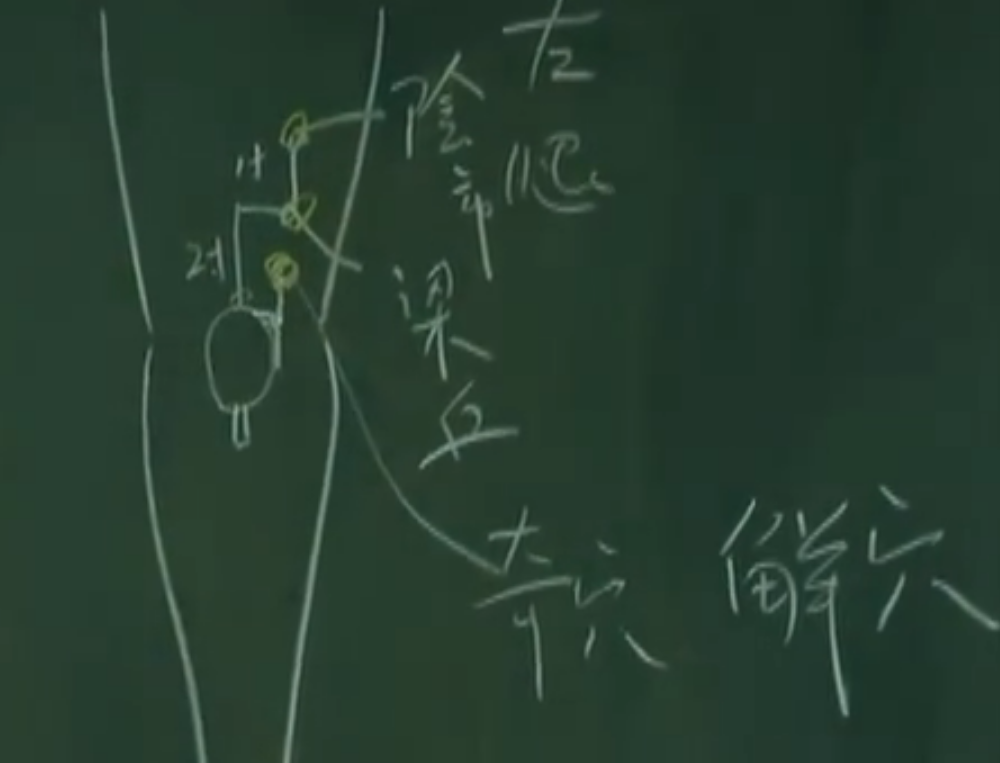 左腿
陰市
1寸
2寸
梁丘
奇穴
解穴